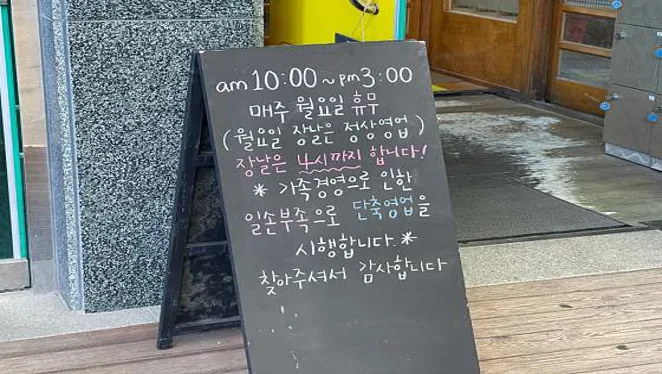 am 10:00 ~ pm 3:00
매주 월요일 휴무
(월요일 장날은 정상영업)
장날은 4시까지 합니다!
* 가족경영으로 인한
일손부족으로 단축영업을
시행합니다.*
찾아주셔서 감사합니다